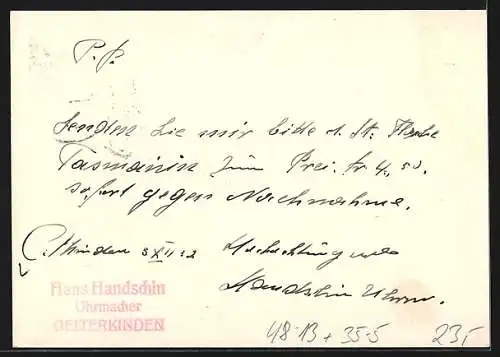 P. P.
Senden Sie mir bitte d. St. Marke
Tasmanien zum Prei. fr 4,50.
sofort gegen Nachnahme.
Hochachtung
Handschin Uhrm.
Hans Handschin
Uhrmacher
GELTERKINDEN
48-13 + 35-5 23,-